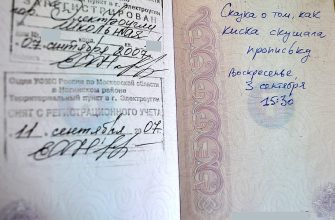 РЕГИСТРИРОВАН
г. Электроугли
Школьная
07 сентября 2007
Отдел УФМС России по Московской области
в Ногинском районе
Территориальный пункт в г. Электроугли
СНЯТ С РЕГИСТРАЦИОННОГО УЧЕТА
11 сентября 07.
Сказка о том, как
киска скушала
пропиську
Воскресенье,
3 сентября
15:30